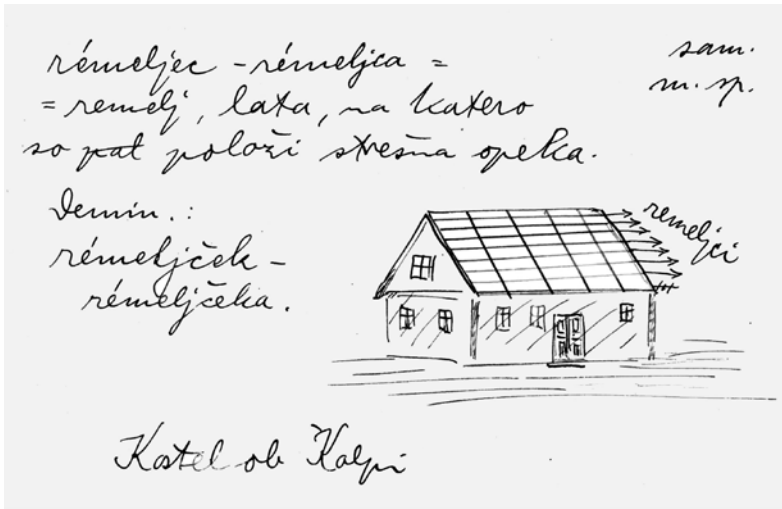 rémeljec - rémeljca =
sam.
m. sp.
= remelj, lata, na katero
so pat položi strešna opeka.
Demin.:
rémeljček -
rémeljčeka.
remeljci
Kostel ob Kolpi